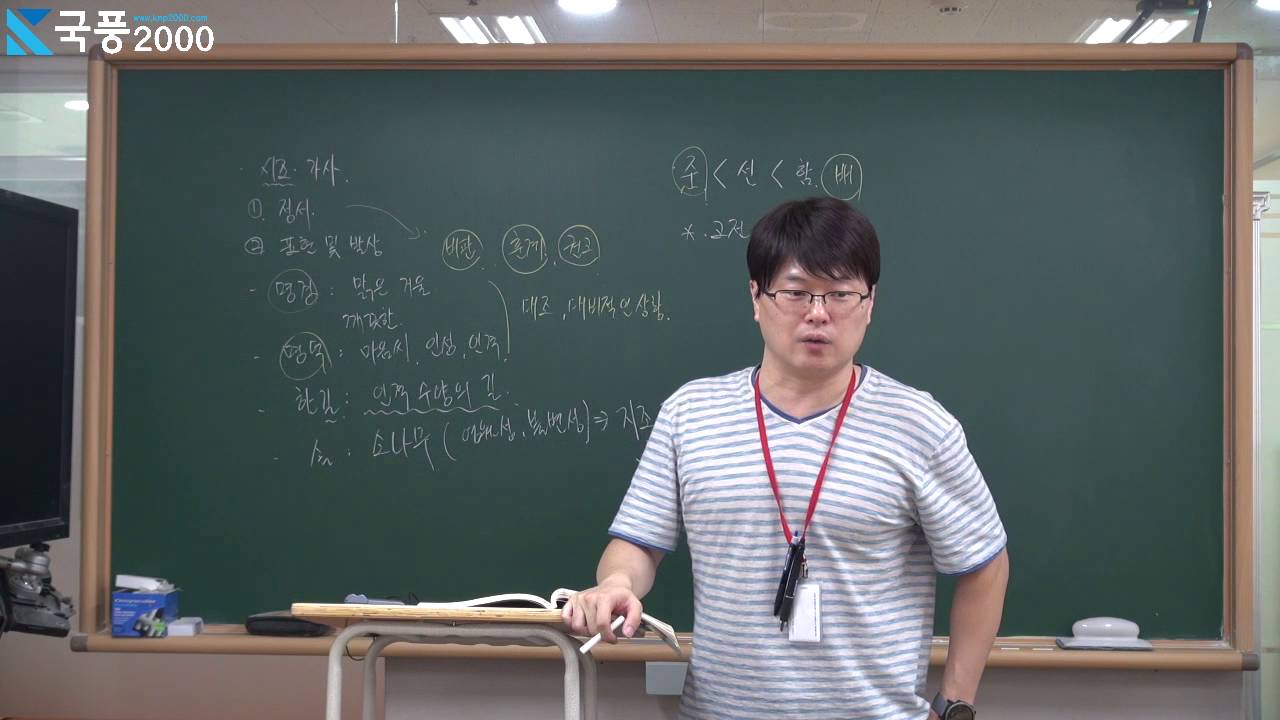 국풍2000
www.knp2000.com
· 시조· 가사.
① 정서.
② 표현 및 발상
비판. 훈계. 권고
- 명경 : 맑은 거울
깨끗한.
대조, 대비적인 상황.
- 명덕 : 마음씨, 인성, 인격.
- 한길 : 인격 수양의 길.
- 솔 : 소나무 ( 불변성) ⇒ 지조
준 < 선 < 함. 배
* . 고전